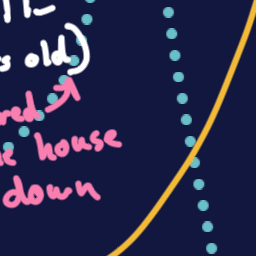 s old)
red
e house
down